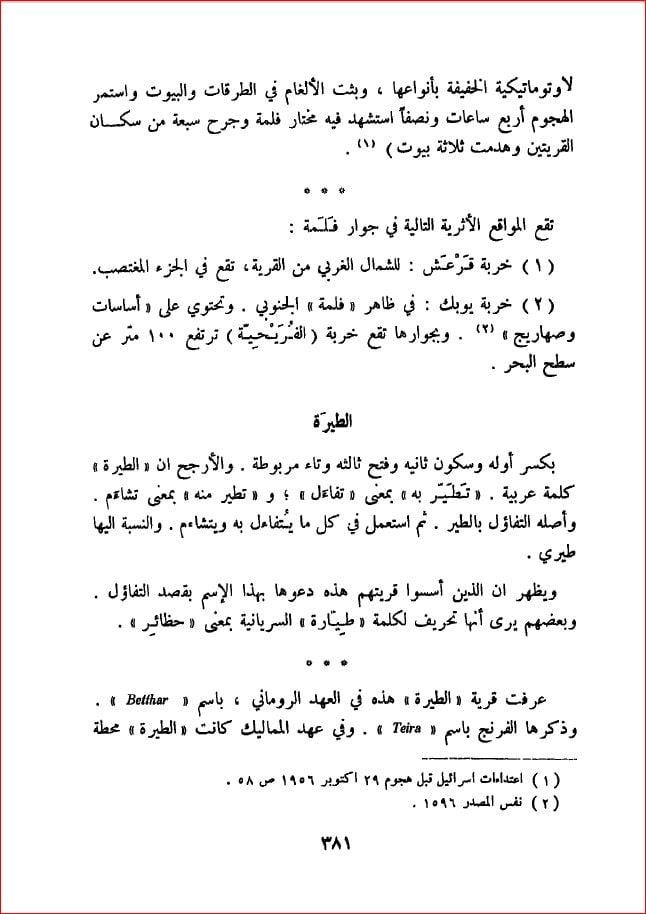 لاوتوماتيكية الخفيفة بأنواعها ، وبثت الألغام في الطرقات والبيوت واستمر
الهجوم أربع ساعات ونصفاً استشهد فيه مختار فلمة وجرح سبعة من سكان
القريتين وهدمت ثلاثة بيوت ) (١) .
* * *
تقع المواقع الأثرية التالية في جوار فَلَمة :
( ١ ) خربة قَرْعَش : للشمال الغربي من القرية، تقع في الجزء المغتصب.
( ٢ ) خربة يوبك : في ظاهر « فلمة » الجنوبي . وتحتوي على « أساسات
وصهاريج » (٢) . وبجوارها تقع خربة ( الفُرَيْحِيّة ) ترتفع ١٠٠ متر عن
سطح البحر .
الطيرَة
بكسر أوله وسكون ثانيه وفتح ثالثه وتاء مربوطة . والأرجح ان « الطيرة »
كلمة عربية . « تَطَيّر به » بمعنى « تفاءَل » ؛ و « تطير منه » بمعنى تشاءَم .
وأصله التفاؤل بالطير . ثم استعمل في كل ما يُتفاءل به ويتشاءم . والنسبة اليها
طيري .
ويظهر ان الذين أسسوا قريتهم هذه دعوها بهذا الإسم بقصد التفاؤل .
وبعضهم يرى أنها تحريف لكلمة « طِيّارة » السريانية بمعنى « حظائِر » .
* * *
عرفت قرية « الطيرة » هذه في العهد الروماني ، باسم « Betthar » .
وذكرها الفرنج باسم « Teira » . وفي عهد المماليك كانت « الطيرة » محطة
( ١ ) اعتداءات اسرائيل قبل هجوم ٢٩ اكتوبر ١٩٥٦ ص ٥٨ .
( ٢ ) نفس المصدر ١٥٩٦ .
٣٨١